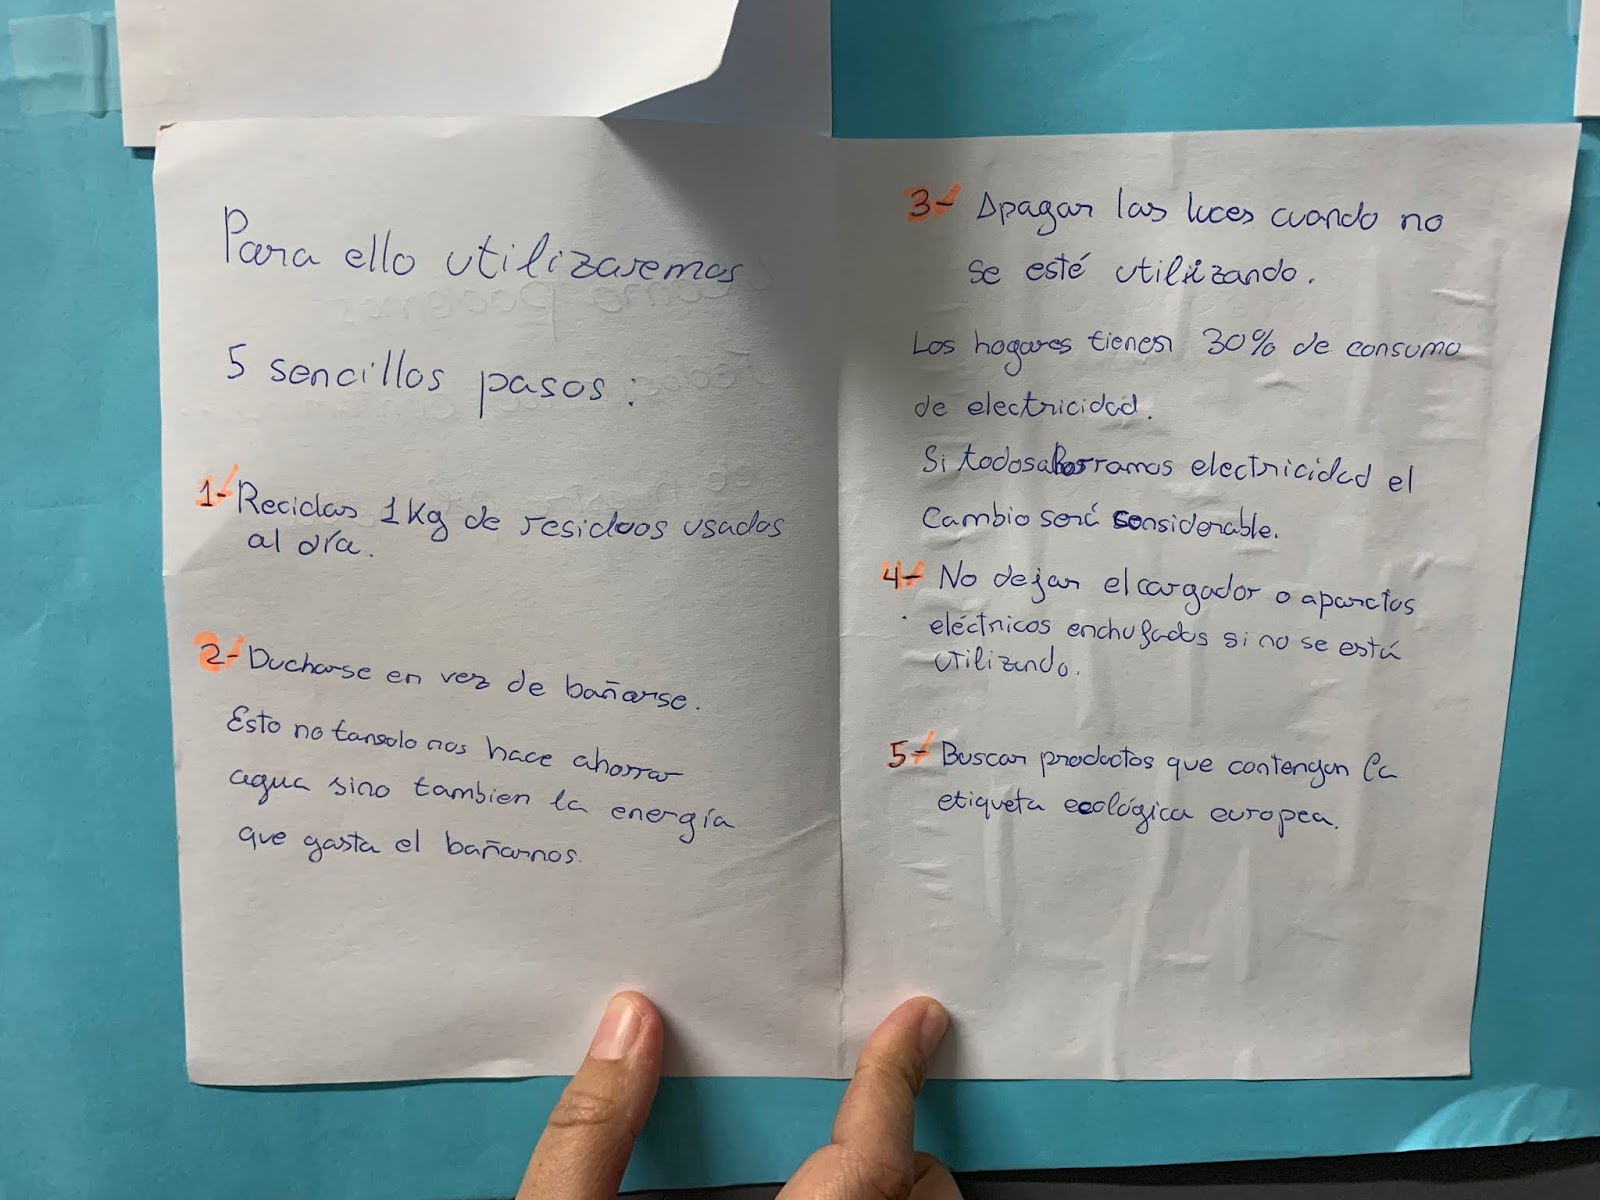 Para ello utilizaremos
5 sencillos pasos:
1- Reciclas 1Kg de residuos usados
al día.
2- Ducharse en vez de bañarse.
Esto no tansolo nos hace ahorrar
agua sino tambien la energía
que gasta el bañarnos.
3- Apagar las luces cuando no
se esté utilizando.
Los hogares tienen 30% de consumo
de electricidad.
Si todos ahorramos electricidad el
Cambio será considerable.
4- No dejar el cargador o aparatos
eléctricos enchufados si no se está
utilizando.
5- Buscar productos que contengan la
etiqueta ecológica europea.